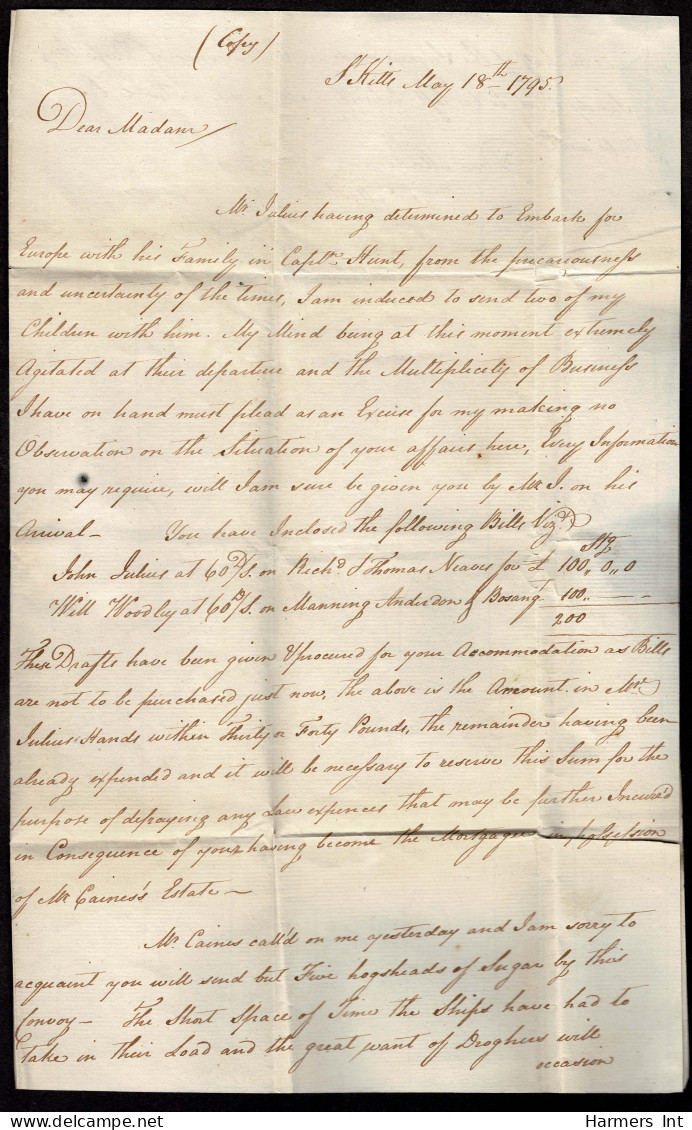 (Copy)
St Kitts May 18th 1795.
Dear Madam
Mr Julius having determined to Embark for
Europe with his Family in Captn. Hunt, from the precariousness
and uncertainty of the times, I am induced to send two of my
Children with him. My Mind being at this moment extremely
Agitated at their departure and the Multiplicity of Business
I have on hand must plead as an Excuse for my making no
Observation on the Situation of your affairs here, Every Information
you may require, will I am sure be given you by Mr. J. on his
Arrival — You have Inclosed the following Bills Vizt.
Stg
John Julius at 60 D/S. on Richd. & Thomas Neaves for £ 100,, 0,, 0
Will Woodley at 60 D/S. on Manning Anderdon & Bosanqt. 100,, — —
200
These Drafts have been given & procured for your Accommodation as Bills
are not to be purchased just now, the above is the Amount in Mr.
Julius Hands within Thirty or Forty Pounds, the remainder having been
already expended and it will be necessary to reserve this Sum for the
purpose of defraying any Law expences that may be further Incured
in Consequence of your having become the Mortgagee in possession
of Mr Caines's Estate —
Mr. Caines call'd on me yesterday and I am sorry to
acquaint you will send but Five hogsheads of Sugar by this
Convoy — The Short Space of Time the Ships have had to
take in their Load and the great want of Droghers will
occasion
Harmers Int